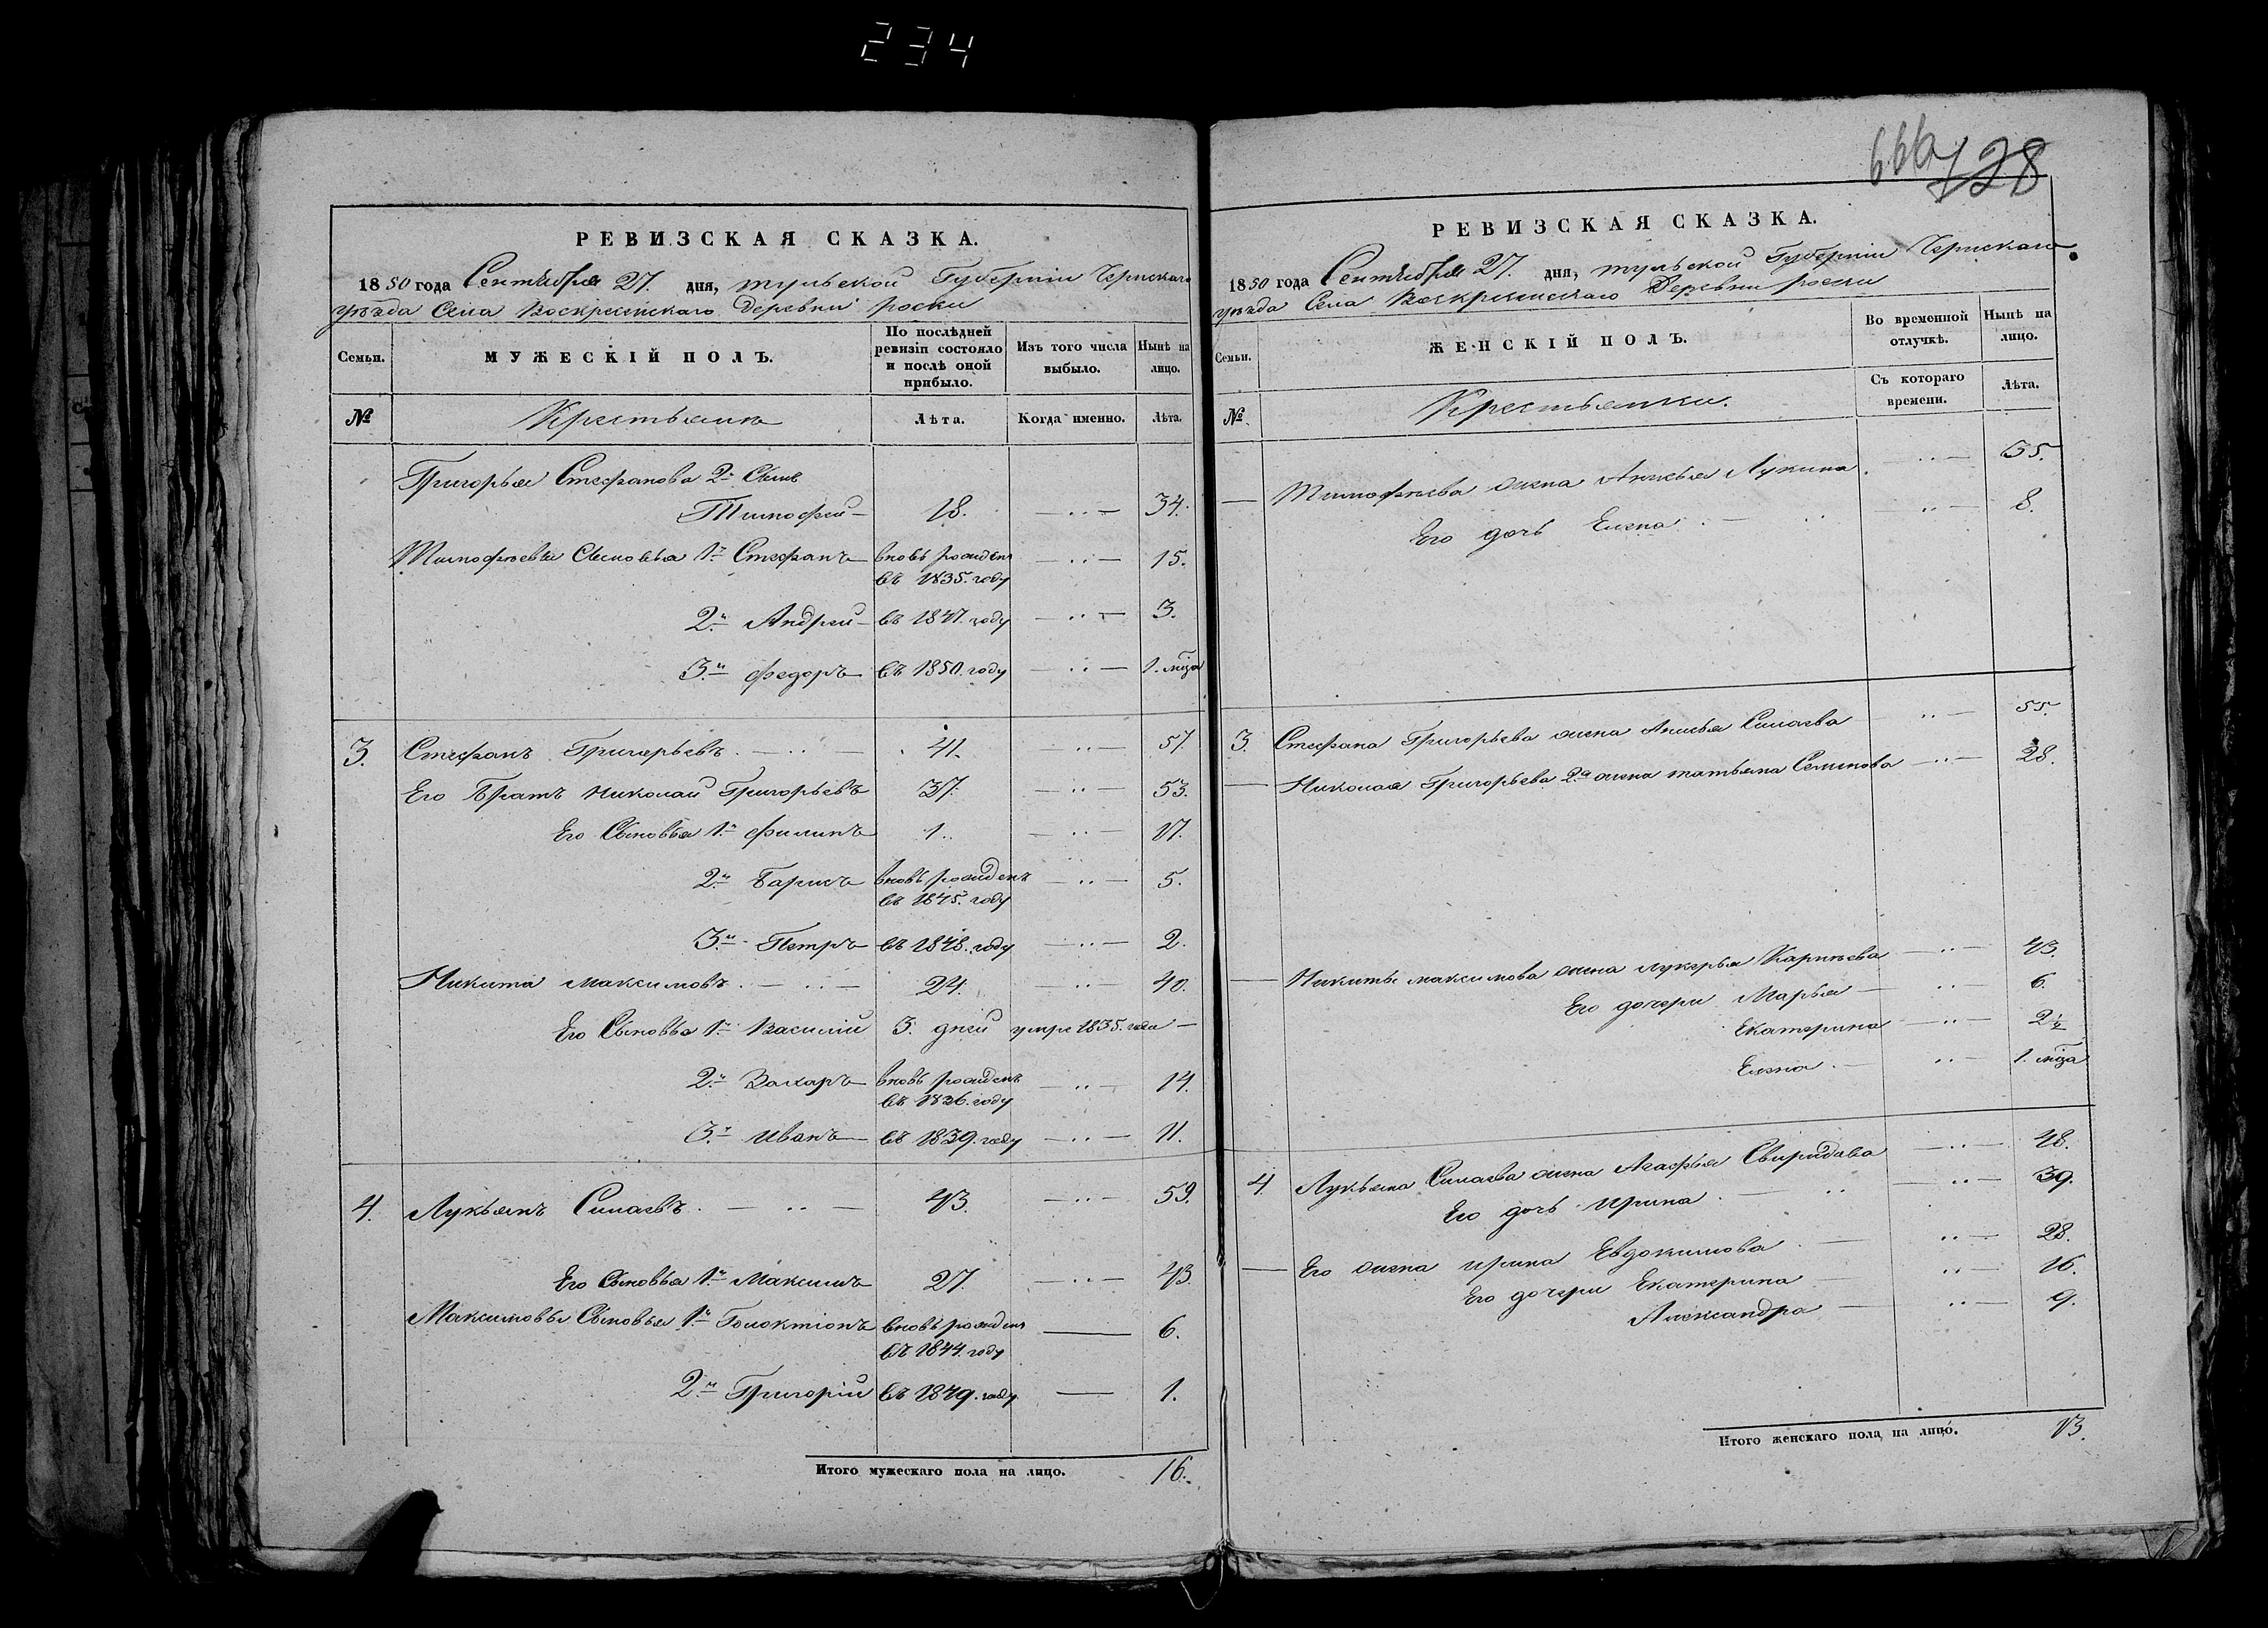 234
666
128
РЕВИЗСКАЯ СКАЗКА.
1850 года Сентября 27. дня, тульской Губерніи Чернскаго
уѣзда Села Воскресенскаго деревни роски
Семьи.
МУЖЕСКІЙ ПОЛЪ.
По послѣдней ревизіи состояло и послѣ оной прибыло.
Изъ того числа выбыло.
Нынѣ на лицо.
№
Крестьянѣ
Лѣта.
Когда именно.
Лѣта.
Григорья Стефанова 2й Сынъ
Тимофей — 18. — .. — 34.
Тимофѣевы Сыновья 1й Стефанъ вновь рожденъ — .. — 15.
въ 1835. году
2й Андрей — въ 1847. году — .. — 3.
3й федоръ въ 1850. году — .. — 1. мца
3. Стефанъ Григорьевъ. — .. — 41. .. — 57
Его Братъ Николай Григорьевъ 37. — .. — 53.
Его Сыновья 1й филипъ 1. — .. — 17.
2й Барисъ вновь рожденъ — .. — 5.
въ 1845. году
3й Петръ въ 1848. году — .. — 2.
Никита максимовъ. — .. — 24. .. — 40.
Его Сыновья 1й Василій 3. дней умре 1835. года —
2й Захаръ вновь рожденъ — .. — 14.
въ 1836. году
3й иванъ въ 1839. году — .. — 11.
4. Лукьянъ Силаевъ. — .. — 43. — .. — 59.
Его Сыновья 1й Максимъ 27. — .. — 43.
Максимовы Сыновья 1й Голоктіонъ вновь рожденъ — 6.
въ 1844. году
2й Григорій въ 1849. году — 1.
Итого мужескаго пола на лицо. 16.
РЕВИЗСКАЯ СКАЗКА.
1850 года Сентября 27. дня, тульской Губерніи Чернскаго
уѣзда Села Воскресенскаго Деревни роски
Семьи.
ЖЕНСКІЙ ПОЛЪ.
Во временной отлучкѣ.
Нынѣ на лицо.
№.
Крестьянки.
Съ котораго времени.
Лѣта.
— Тимофѣева жена Анисья Лукина. — .. — 35.
Его дочь Елена. — .. .. — 8.
3. Стефана Григорьева жена Анисья Силаева .. — 55.
— Николая Григорьева 2а жена татьяна Семенова — .. — 28.
— Никиты максимова жена лукерья Карнѣева — .. — 43.
Его дочери Марья — .. — 6.
Екатерина — .. — 2 ½
Елена. — .. — 1. мца
4. Лукьяна Силаева жена Агафья Свиридова — .. — 48.
Его дочь Ирина. — .. — .. — 39.
— Его жена ирина Евдокимова. — .. — 28.
Его дочери Екатерина — .. — 16.
Александра — .. — 9.
Итого женскаго пола на лицо. 13.